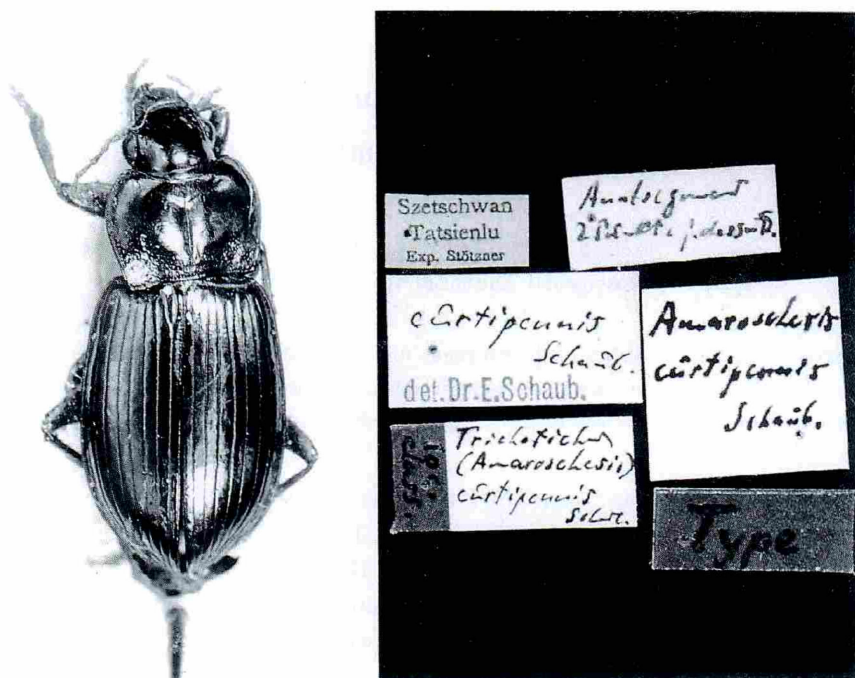 Szetschwan
Tatsienlu
Exp. Stötzner
Analsegment
cûrtipennis
Schaûb.
det. Dr. E. Schaub.
Amaroschesis
cûrtipennis
Schaûb.
Trichotichnus
(Amaroschesis)
cûrtipennis
Type